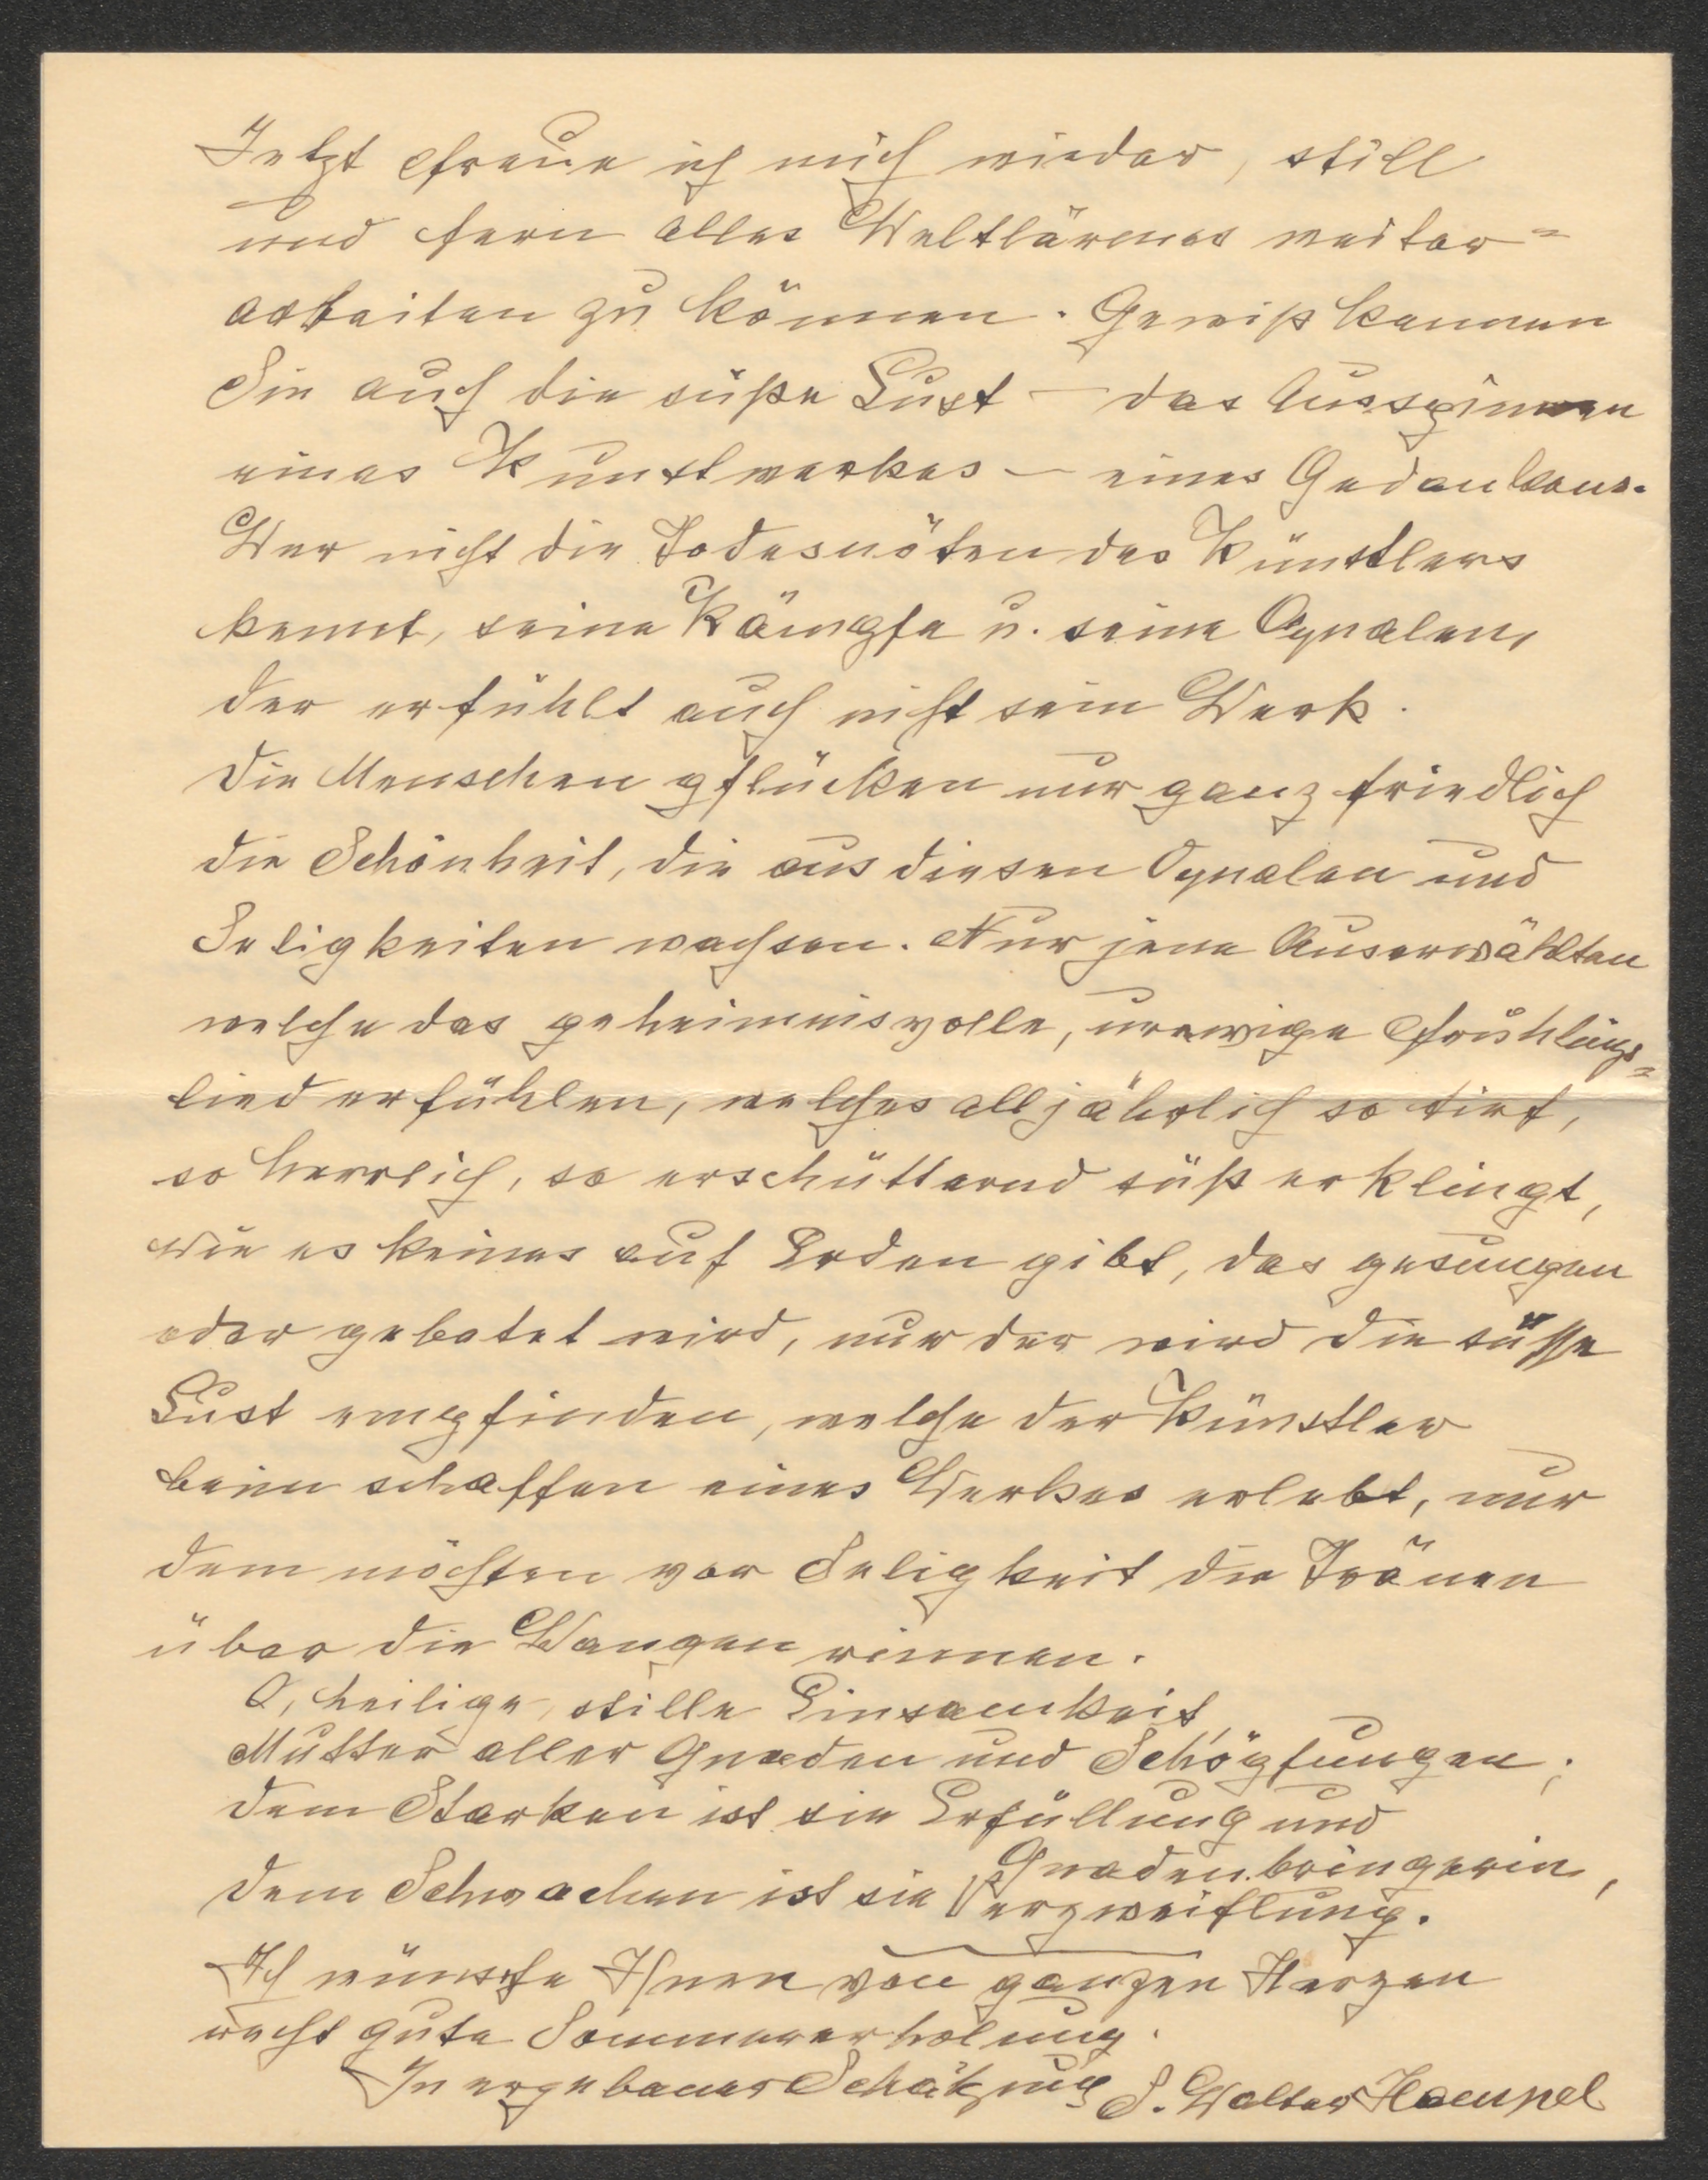 Jetzt freue ich mich wieder, still
und fern alles Weltlärmes weiter=
arbeiten zu können. Gewiß kennen
Sie auch die süße Lust – das Ausspinnen
eines Kunstwerkes – eines Gedankens.
Wer nicht die Todesnöten des Künstlers
kennt, seine Kämpfe u. seine Qualen,
der erfühlt auch nicht sein Werk.
Die Menschen pflücken nur ganz friedlich
die Schönheit, die aus diesen Qualen und
Seligkeiten wachsen. Nur jene Auserwählten
welche das geheimnisvolle, urewige Frühlings=
lied erfühlen, welches alljährlich so tief,
so herrlich, so erschütternd süß erklingt,
wie es keines auf Erden gibt, das gesungen
oder gebetet wird, nur der wird die süsse
Lust empfinden, welche der Künstler
beim schaffen eines Werkes erlebt, nur
dem möchten vor Seligkeit die Tränen
über die Wangen rinnen.
O, heilige, stille Einsamkeit,
Mutter aller Gnaden und Schöpfungen;
dem Starken ist sie Erfüllung und
Gnadenbringerin,
dem Schwachen ist sie Verzweiflung.
Ich wünsche Ihnen von ganzen Herzen
recht gute Sommererholung.
In ergebener Schätzung S. Walter Hampel